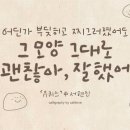 어딘가 부딪히고 찌그러졌어도
그 모양 그대로
괜찮아, 잘했어
calligraphy by